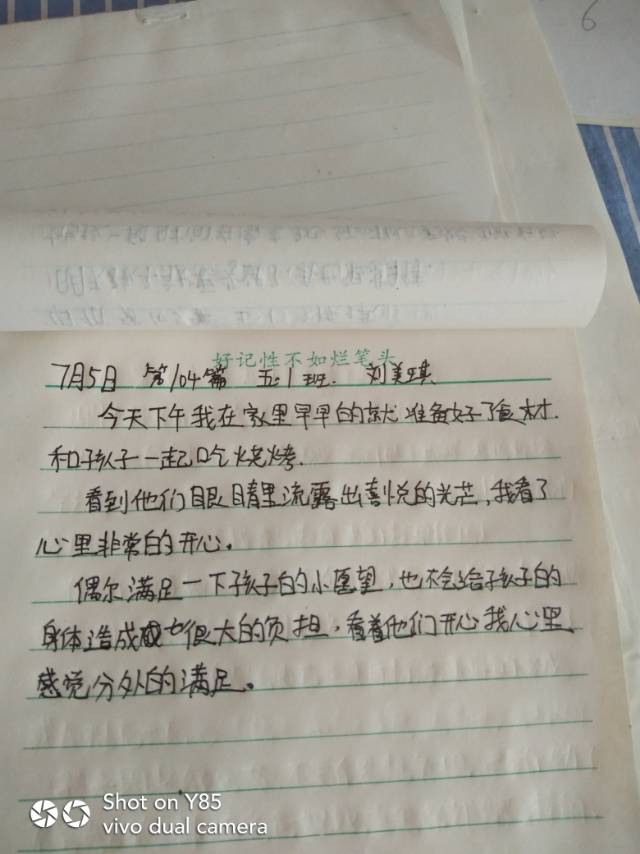 6
好记性不如烂笔头
7月5日 第104篇 五.1班. 刘美琪
今天下午我在家里早早的就准备好了食材.
和孩子一起吃烧烤.
看到他们眼睛里流露出喜悦的光芒,我看了
心里非常的开心。
偶尔满足一下孩子的小愿望,也不会给孩子的
身体造成很大的负担,看着他们开心我心里
感觉分外的满足。
Shot on Y85
vivo dual camera